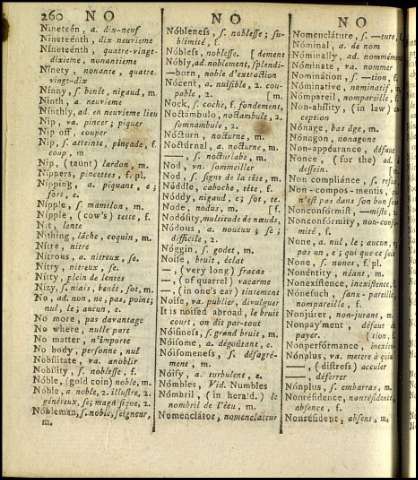 260 N O
N O
N O
Nineteén, a. dix-neuf
Nineteénth, dix neuvieme
Ninetéenth, quatre-vingt-
dixieme, nonantieme
Ninety, nonante, quatre-
vingt-dix
Ninny, s. binêt, nigaud, m.
Ninth, a. neuvieme
Ninthly, ad. en neuvieme lieu
Nip, va. pincer; piquer
Nip off, couper
Nip, s. atteinte, pinçade, f.
coup, m.
Nip, (taunt) lardon, m.
Nippers, pincettes, f. pl.
Nipping, a. piquant, e;
fort, e.
Nipple, s. mamelon, m.
Nipple, (cow's) tette, f.
Nit, lente
Nithing, lâche, coquin, m.
Nitre, nitre
Nitrous, a. nitreux, se.
Nitry, nitreux, se.
Nitty, plein de lentes
Nizy, s. niais, benêt, sot, m.
No, ad. non, ne, pas, point;
nul, le; aucun, e.
No more, pas davantage
No where, nulle part
No matter, n'importe
No body, personne, nul
Nobilitate, va. anoblir
Nobility, s. noblesse, f.
Nóble, (gold coin) noble, m.
Nóble, a noble, 2. illustre, 2.
généreux, se; magnifique, 2.
Nóbleman, s. noble, seigneur,
m.
Nóbleness, s. noblesse; su-
blimité, f.
Nóbless, noblesse. [dement
Nóbly, ad. noblement, splendi-
—born, noble d'extraction
Nócent, a. nuisible, 2. cou-
pable, 2. [m.
Nock, s. coche, f. fondement,
Noctámbulo, noctambule, 2.
somnambule, 2.
Nócturn, nocturne, m.
Noctúrnal, a. nocturne, m.
—, s. nocturlabe, m.
Nod, vn. sommeiller
Nod, s. signe de la tête, m.
Nóddle, caboche, tête, f.
Nóddy, nigaud, e; sot, te.
Node, nodus, m. [f.
Nodósity, multitude de nœuds,
Nódous, a. noueux; se;
difficile, 2.
Nóggin, s. godet, m.
Noise, bruit, éclat
—, (very long) fracas
—, (of quarrel) vacarme
— (in one's ear) tintement
Noise, va. publier, divulguer
It is noised abroad, le bruit
court, on dit par-tout
Nóisiness, s. grand bruit, m.
Nóisome, a. dégoûtant, e.
Nóisomeness, s. désagré-
ment, m.
Nóisy, a. turbulent, e.
Nómbles, Vid. Numbles
Nómbril, (in herald.) le
nombril de l'écu, m.
Nomenclátor, nomenclateur
Nomenclature, s. —ture, f.
Nóminal, a. de nom
Nóminally, ad. nommément
Nóminate, va. nommer
Nominátion, s. —tion, f.
Nóminative, nominatif, m.
Nómpareil, nompareille, f.
Non-ability, (in law) ex-
ception
Nónage, bas âge, m.
Nónagon, ennéagone
Non-appéarance, défaut
Nonce, (for the) ad. à
dessein.
Non compliance, s. refus
Non-compos-mentis,
n'est pas dans son bon sens
Nonconfórmist, —miste, 2.
Nonconfórmity, non-confor-
mité, f.
None, a. nul, le; aucun, e;
pas un, e; qui que ce soit
None, s. none, f. pl.
Nonéntity, néant, m.
Nonexístence, inexistence,
Nónesuch, sans-pareille,
nompareille, f.
Nonjúror, non-jurant, m.
Nonpay'ment, défaut de
payer. (tion,
Nonperfórmance, inexécu-
Nónplus, va. mettre à quia
—, (distress) acculer
—, déferrer
Nónplus, s. embarras, m.
Nonrésidence, nonrésidence,
absence, f.
Nonrésident, absent, m.